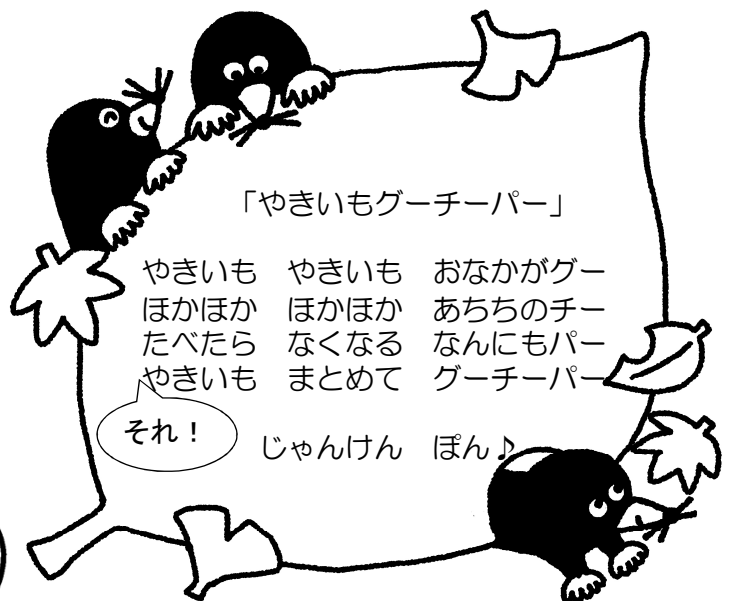 「やきいもグーチーパー」
やきいも　やきいも　おなかがグー
ほかほか　ほかほか　あちちのチー
たべたら　なくなる　なんにもパー
やきいも　まとめて　グーチーパー
それ！
じゃんけん　ぽん♪